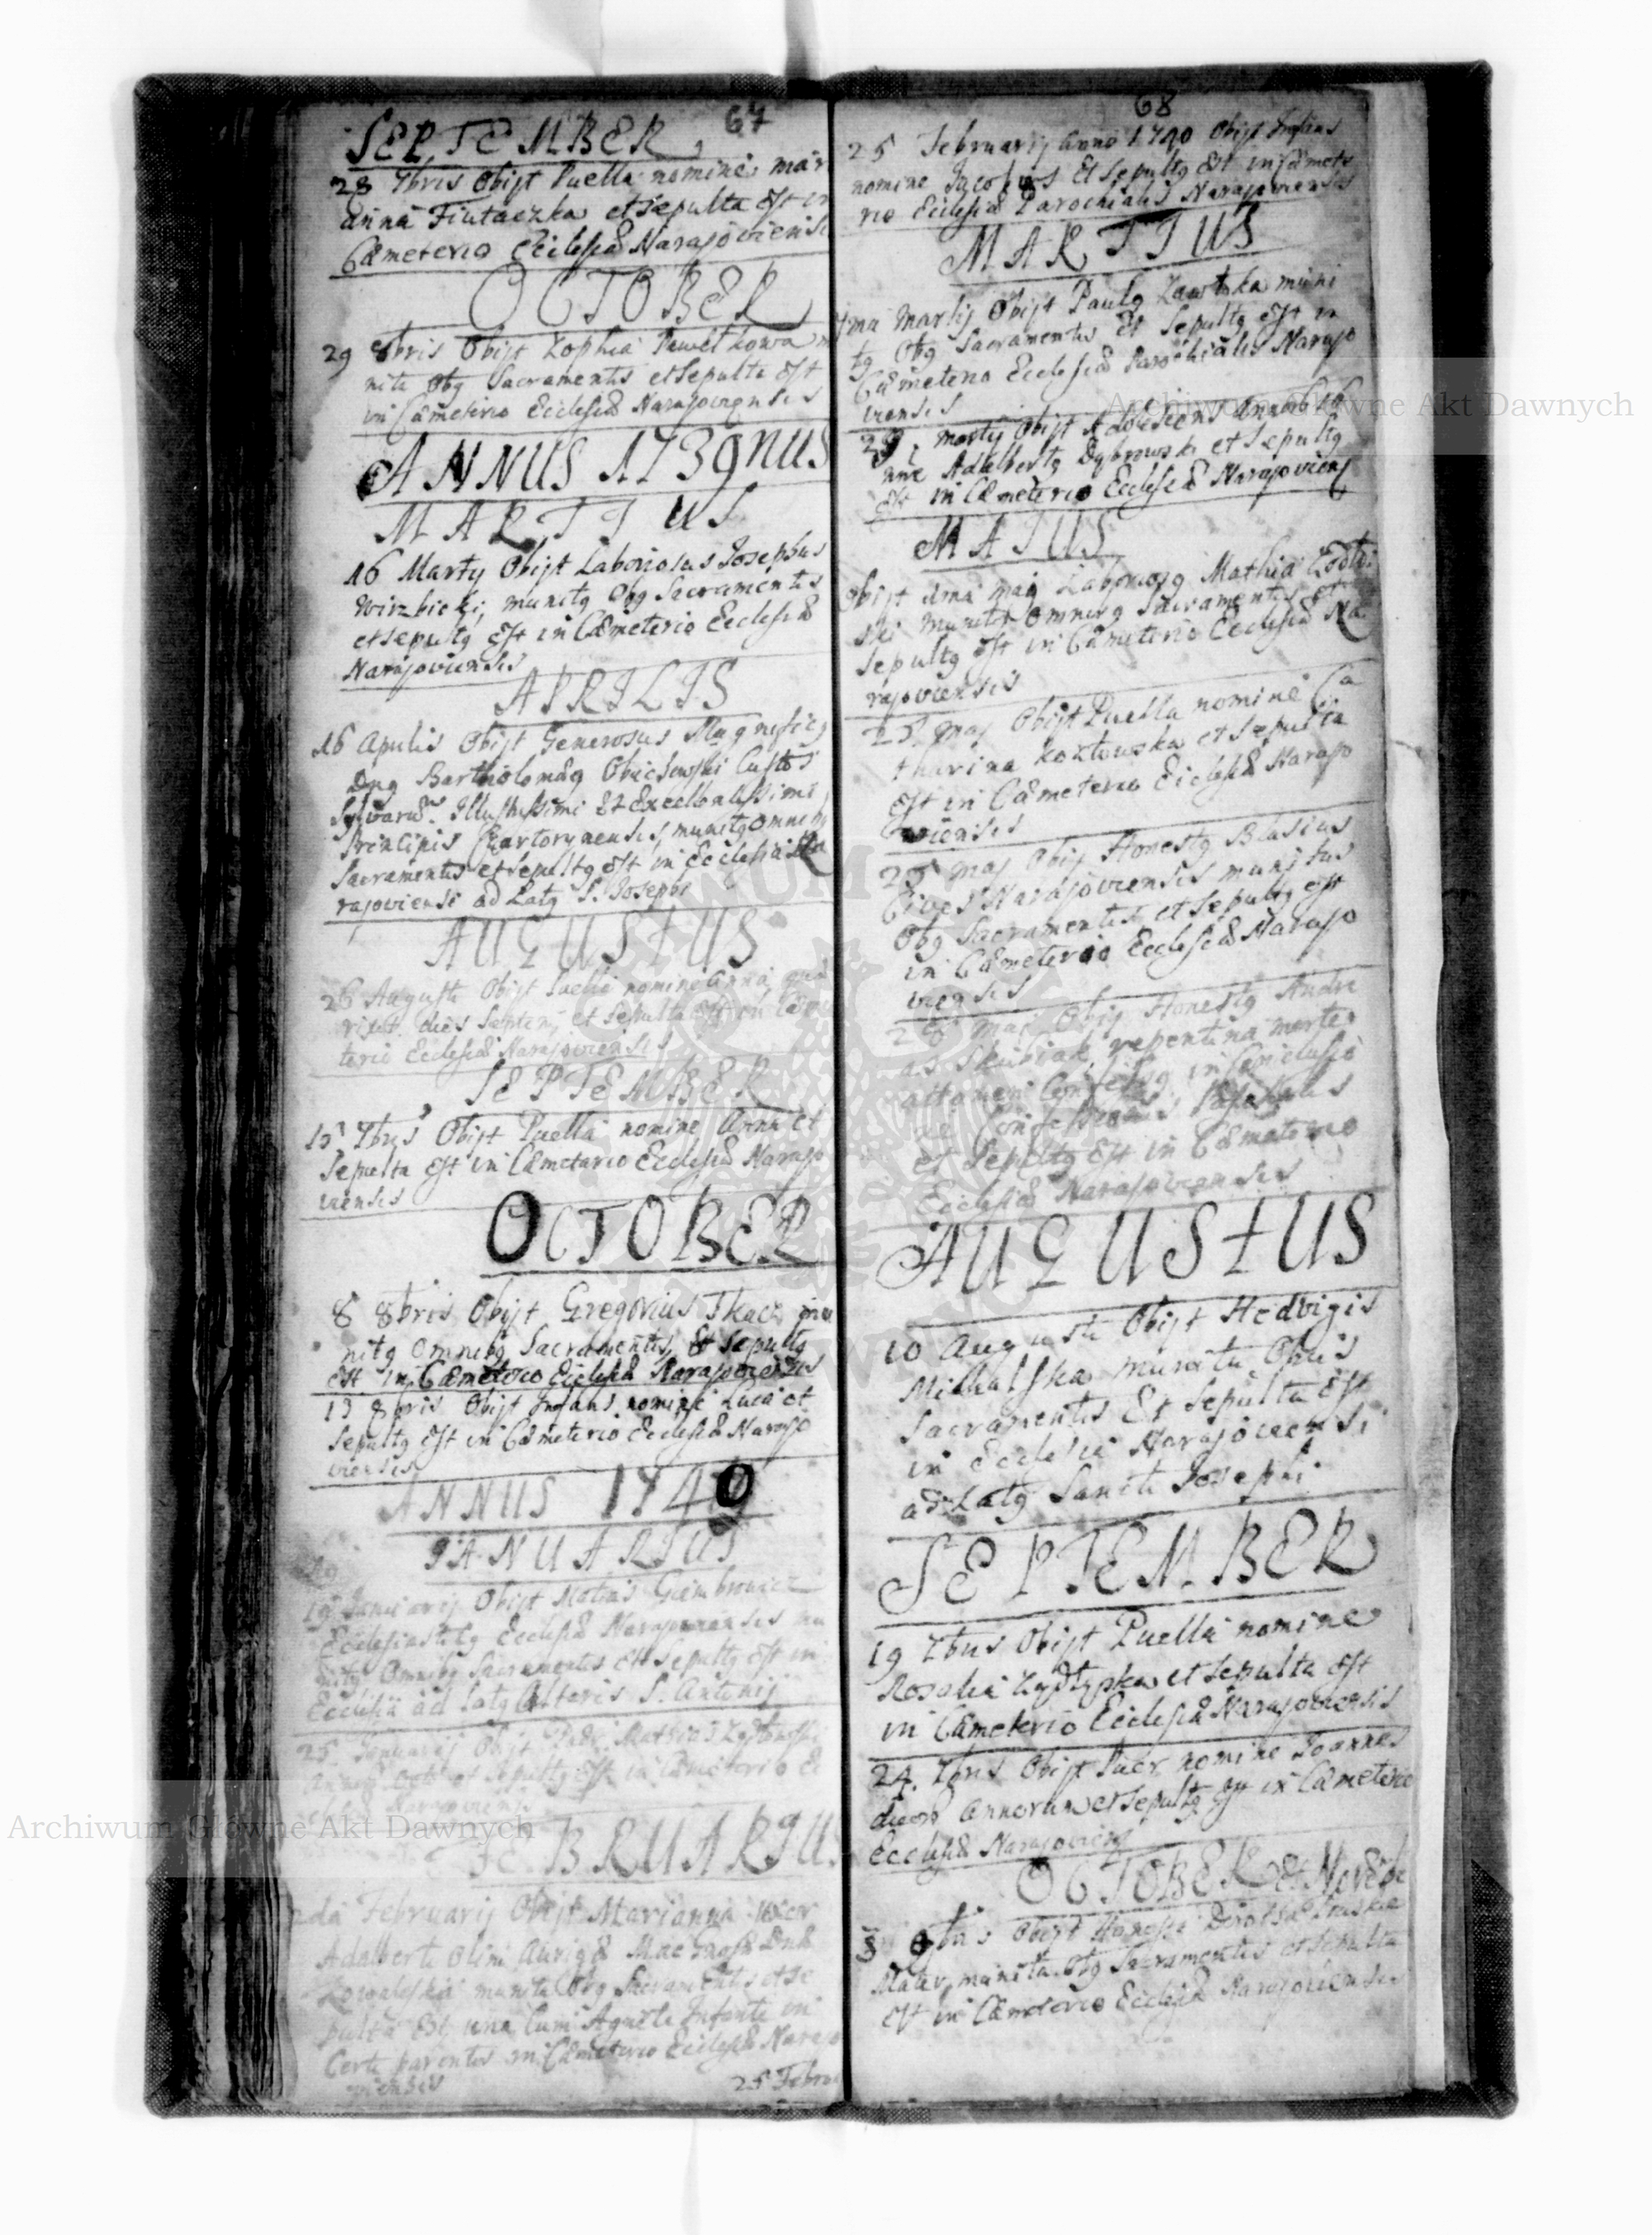 67
SEPTEMBER
28 7bris Obijt Puella nomine mari
anna Fiutaczka et sepulta est in
Cæmeterio Ecclesiæ Narajoviensi
OCTOBER
29 8bris Obijt Zophia Pawelkowa mu
nita Obq Sacramentis et sepulta est
in Cæmeterio Ecclesiæ Narajoviensis
ANNUS 1739nus
MARTIUS
16 Martij Obijt Laboriosus Josephus
Wirzbicki, munitq Obq Sacramentis
et sepultq est in Cæmeterio Ecclesiæ
Narajoviensis
APRILIS
16 Aprilis Obijt Generosus Magnificq
Dnq Bartholomæq Custos
Sylvarū Illustrissimi Et Excellentissimi
Principis Czartorynensis, munitq omnibq
Sacramentis et sepultq est in Ecclesia Na
rajoviensi ad Latq S. Josephi
AUGUSTUS
26 Augusti Obijt Puella nomine Anna,
dies Septem, et sepulta est in Cæme
terio Ecclesiæ Narajoviensis
SEPTEMBER
15 7bris Obijt Puella nomine Anna et
sepulta est in Cæmeterio Ecclesiæ Narajo
viensis
OCTOBER
8 8bris Obijt Gregorius Tkacz mu
nitq Omnibq Sacramentis, Et sepultq
est in Cæmeterio Ecclesiæ Narajoviensis
13 8bris Obijt Infans nomine Luca et
sepultq est in Cæmeterio Ecclesiæ Narajo
viensis
ANNUS 1740
JANUARIUS
19 Januarij Obijt Matias
Ecclesiasticq Ecclesiæ Narajoviensis mu
nitq Omnibq Sacramentis et sepultq est in
Ecclesia ad latq Altaris S. Antonij
25 Januarij Obijt Mathias
et sepultq est in Cæmeterio Ec
clesiæ Narajoviensis
FEBRUARIUS
2da Februarij Obijt Marianna Uxor
Adalberti olim Aurigæ
munita Obq Sacramentis et se
pulta Est, una cum Infante in
parentis in Cæmeterio Ecclesiæ Narajo
viensis
25 Februa
68
25 Februarij Anno 1740 Obijt Infans
nomine Jacobus Et sepultq Est in Cæmete
rio Ecclesiæ Parochialis Narajoviensis
MARTIUS
1ma Martij Obijt Paulq muni
tq Obq Sacramentis Et sepultq est in
Cæmeterio Ecclesiæ Parochialis Narajo
viensis
29. Martij Obijt Adolescens
Adalbertq Dąbrowski et sepultq
est in Cæmeterio Ecclesiæ Narajoviens
MAJUS
Obijt 1ma Maij Laboriosq Mathia
ski munitq Omnibq Sacramentis et
sepultq est in Cæmeterio Ecclesiæ Na
rajoviensis
25 Maj Obijt Puella nomine Ca
tharina Kozłowska et sepulta
est in Cæmeterio Ecclesiæ Narajo
viensis
25 Maj Obij Honestq Blasius
Cives Narajoviensis munitus
Obq Sacramentis, et sepultq est
in Cæmeterio Ecclesiæ Narajo
viensis
28 Maj Obij Honestq Andre
as Skubiak, repentina morte
attamen Confessq
Confessionis Paschalis
et sepultq est in Cæmeterio
Ecclesiæ Narajoviensis
AUGUSTUS
10 Augusti Obijt Hedvigis
Michalska munita Obus
Sacramentis Et sepulta est
in Ecclesia Narajoviensi
ad Latq Sancti Josephi
SEPTEMBER
19 7bris Obijt Puella nomine
Rosalia et sepulta est
in Cæmeterio Ecclesiæ Narajoviensis
24. 7bris Obijt Puer nomine Joannes
duorū Annorum et sepultq est in Cæmeterio
Ecclesiæ Narajoviens
OCTOBER et Novēbe
3 9bris Obijt Honesta Dorothea
Mater, munita Obq Sacramentis et sepulta
est in Cæmeterio Ecclesiæ Narajoviensis
Archiwum Główne Akt Dawnych
Archiwum Główne Akt Dawnych